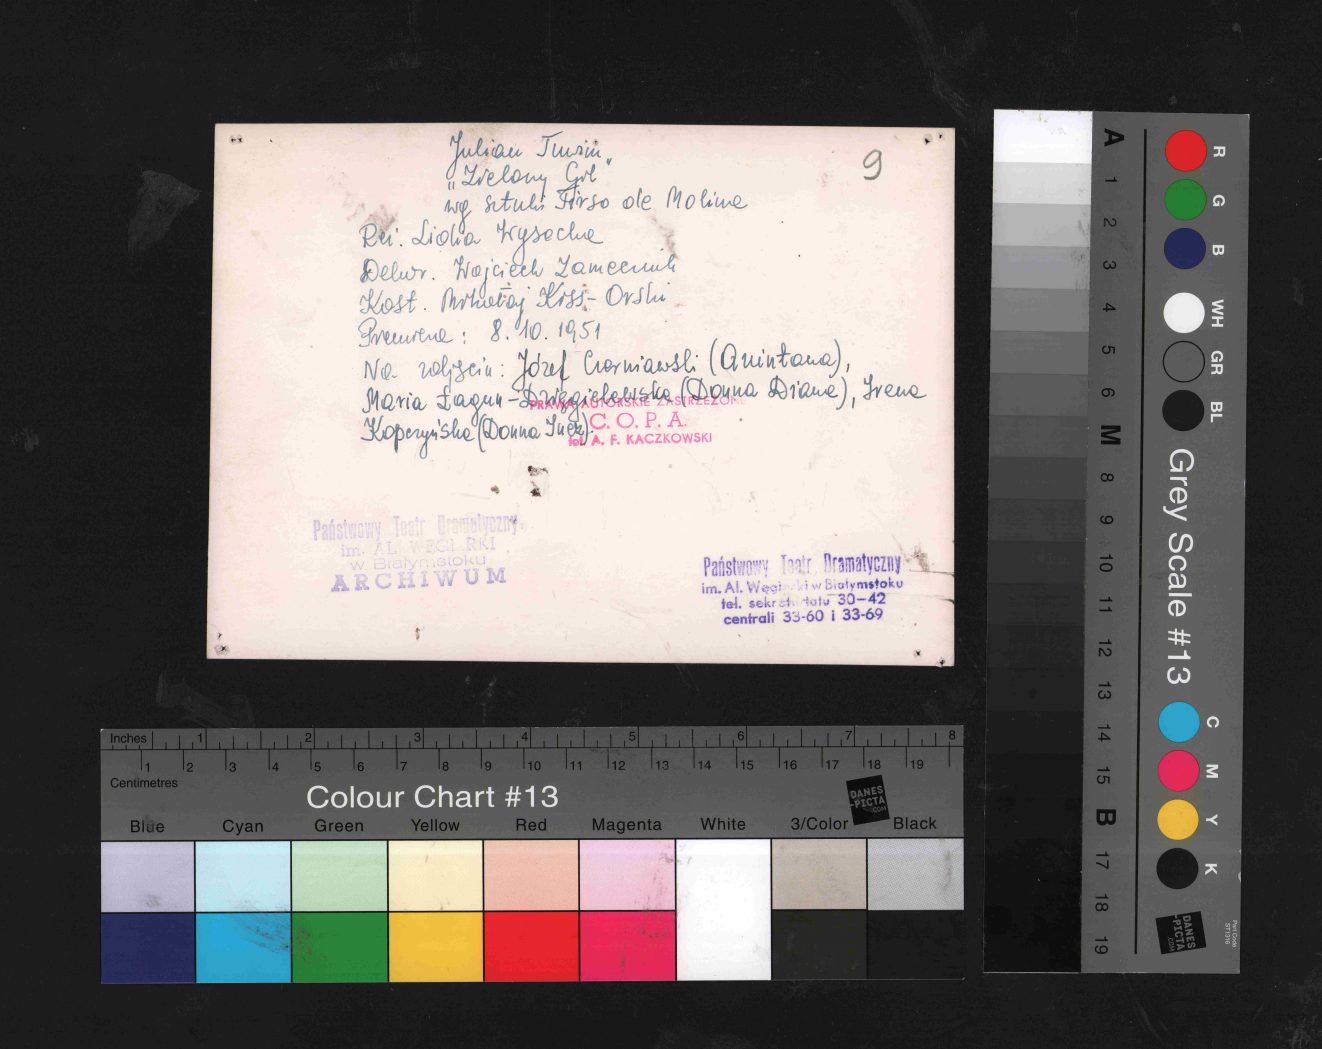 9
Julian Tuwim
"Zielony Gil"
wg sztuki Tirso de Molina
Reż. Lidia Wysocka
Dekor. Wojciech Zamecznik
Kost. Mikołaj Kiss-Orski
Premiera: 8.10.1951
Na zdjęciu: Józef Czerniawski (Quintana),
Maria Łagun-Dzięgielewska (Donna Diana), Irena
Kopczyńska (Donna Inez).
PRAWA AUTORSKIE ZASTRZEŻONE
C. O. P. A.
fot. A. F. KACZKOWSKI
Państwowy Teatr Dramatyczny
im. AL. WĘGIERKI
w Białymstoku
ARCHIWUM
Państwowy Teatr Dramatyczny
im. Al. Węgierki w Białymstoku
tel. sekretariatu 30-42
centrali 33-60 i 33-69
Inches 1 2 3 4 5 6 7 8
1 2 3 4 5 6 7 8 9 10 11 12 13 14 15 16 17 18 19
Centimetres
Colour Chart #13
DANES
-PICTA
.COM
Blue Cyan Green Yellow Red Magenta White 3/Color Black
A 1 2 3 4 5 6 M 8 9 10 11 12 13 14 15 B 17 18 19
R G B WH GR BL
Grey Scale #13
C M Y K
DANES
-PICTA
.COM
Part Code
ST1316